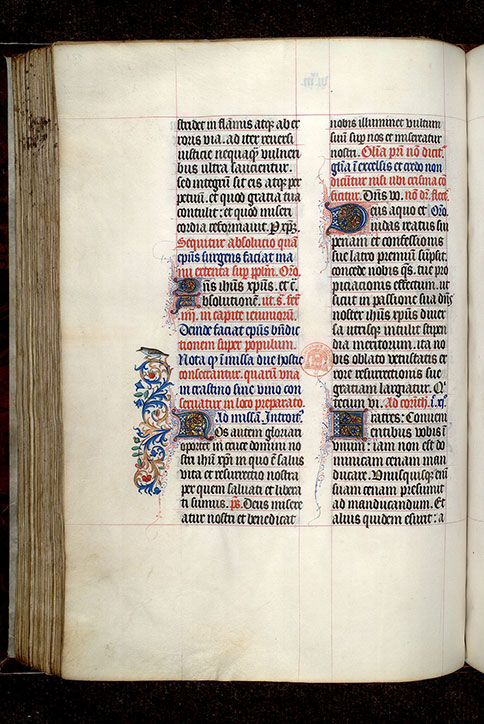 stridet in flāmis atqȝ ab er
roris via. ad iter reuersi
iusticie nequaqȝ vulneri
bus ultra saucientur.
Sed integrū sit eis atqȝ per
petuū. et quod gratia tua
contulit: et quod miseri
cordia reformauit. P xp̄ȝ.
Sequitur absolutio quā
ep̄us surgens faciat ma
nu extenta sup pp̄lm̄. Oro.
Dn̄s ihūs xp̄us. et c̄.
Absolutionē. ut s̄. fer̄.
iiij. in capite ieiuniorū.
Deinde faciat ep̄us bn̄dic
tionem super populum.
Nota qȝ ī missa due hostie
consecrantur. quarū vna
in crastino sine vino con
seruatur in loco preparato.
Ad missā. Introit᷒.
Nos autem gloriari
oportet in cruce domini no
stri ihū xp̄i in quo ē salus
vita et resurrectio nostra
per quem saluati et libera
ti sumus. ps̄. Deus misere
atur nostri et benedicat
nobis illuminet vultum
suū sup nos et misereatur
nostri. Gl̄ia pr̄i nō dicit᷒.
gl̄ia ī excelsis et credo non
dicūtur nisi ubi crisma cō
ficitur. Dn̄s vo. nō dr̄.
Deus a quo et Oro.
iudas reatus sui
penam et confessionis
sue latro premiū sūpsit.
concede nobis q̄s. tue pro
piciacionis effectum. ut
sicut in passione sua dn̄s
noster ihūs xp̄us diuer
sa utrisqȝ intulit stipen
dia meritorum. ita no
bis oblato vetustatis er
rore resurrectionis sue
gratiam largiatur. Q'
tecum vi. Ad corīth.
Fratres: Conueni
entibus vobis ī
vnum: iam non est do
minicam cenam man
ducare. Vnusquisqȝ enī
suam cenam presumit
ad manducandum. Et
alius quidem esurit: a